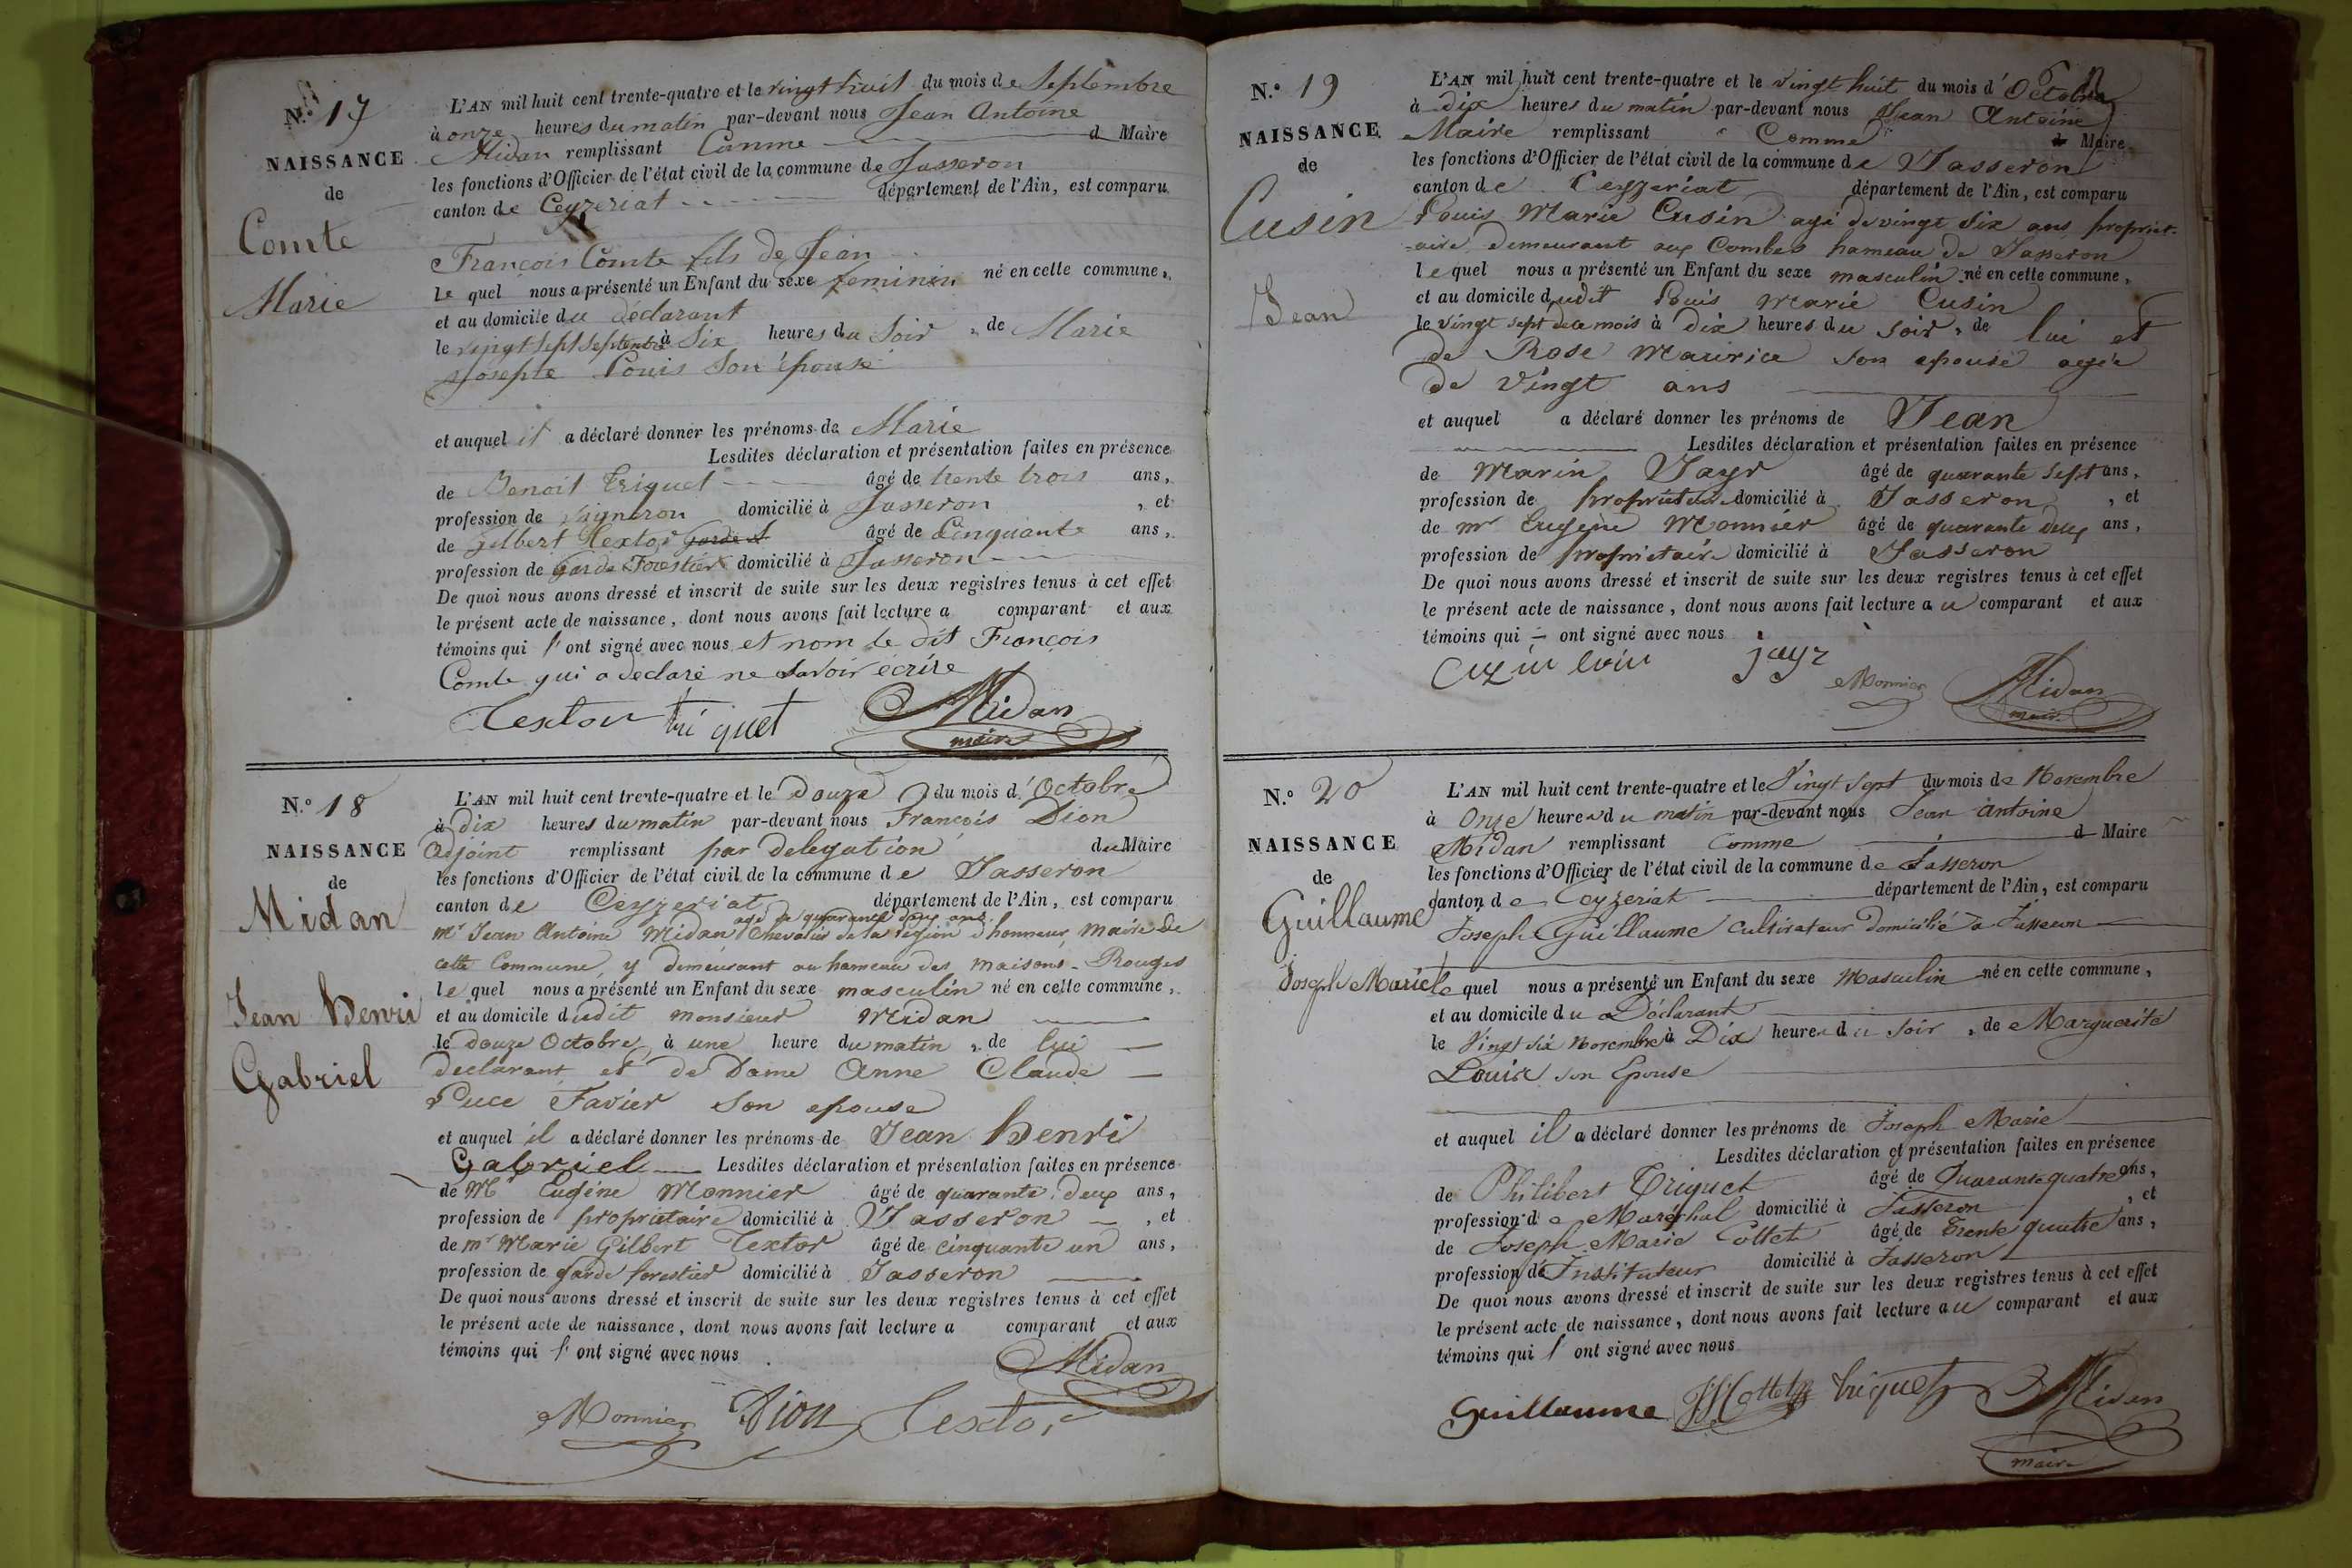 N.º 17
NAISSANCE
de
Comte
Marie
L'AN mil huit cent trente-quatre et le vingt huit du mois de Septembre
à onze heures du matin par-devant nous Jean Antoine
Midan remplissant Comme d Maire
les fonctions d'Officier de l'état civil de la commune de Jasseron
canton de Ceyzeriat département de l'Ain, est comparu
François Comte fils de Jean
Le quel nous a présenté un Enfant du sexe feminin né en cette commune,
et au domicile du déclarant
le vingt sept septembre à Six heures du Soir, de Marie
Josephe Louis Son épouse
et auquel il a déclaré donner les prénoms de Marie
Lesdites déclaration et présentation faites en présence
de Benoit Triquet âgé de trente trois ans,
profession de vigneron domicilié à Jasseron, et
de Gilbert Textor garde âgé de Cinquante ans,
profession de Garde Forestier domicilié à Jasseron
De quoi nous avons dressé et inscrit de suite sur les deux registres tenus à cet effet
le présent acte de naissance, dont nous avons fait lecture a comparant et aux
témoins qui l' ont signé avec nous et nom le dit François
Comte qui a declaré ne savoir ecrire
Textor triquet Midan
maire
N.º 18
NAISSANCE
de
Midan
Jean Henri
Gabriel
L'AN mil huit cent trente-quatre et le Douze du mois d'Octobre
à Dix heures du matin par-devant nous François Dion
Adjoint remplissant par Delegation du Maire
les fonctions d'Officier de l'état civil de la commune de Jasseron
canton de Ceyzeriat département de l'Ain, est comparu
agé de quarante deux ans
Mr Jean Antoine Midan Chevalier de la Légion d'honneur, maire de
cette Commune, y demeurant au hameau des maisons-Rouges
le quel nous a présenté un Enfant du sexe masculin né en cette commune,
et au domicile dudit monsieur Midan
le Douze Octobre à une heure du matin, de lui
declarant et de Dame Anne Claude
Luce Favier son epouse
et auquel il a déclaré donner les prénoms de Jean Henri
Gabriel Lesdites déclaration et présentation faites en présence
de Mr Eugéne Monnier âgé de quarante deux ans,
profession de propriétaire domicilié à Jasseron, et
de mr Marie Gilbert Textor âgé de cinquante un ans,
profession de garde forestier domicilié à Jasseron
De quoi nous avons dressé et inscrit de suite sur les deux registres tenus à cet effet
le présent acte de naissance, dont nous avons fait lecture a comparant et aux
témoins qui l' ont signé avec nous
Midan
Monnier Dion Textor
N.º 19
NAISSANCE
de
Cusin
Jean
L'AN mil huit cent trente-quatre et le vingt huit du mois d'Octobre
à dix heures du matin par-devant nous Jean Antoine
Maire remplissant Comme d Maire
les fonctions d'Officier de l'état civil de la commune de Jasseron
canton de Ceyzeriat département de l'Ain, est comparu
Louis Marie Cusin agé de vingt six ans propriet-
aire demeurant aux Combes hameau de Jasseron
lequel nous a présenté un Enfant du sexe masculin né en cette commune,
et au domicile dudit Louis Marie Cusin
le vingt sept de ce mois à dix heures du soir, de lui et
de Rose Maurice son epouse agée
de vingt ans
et auquel a déclaré donner les prénoms de Jean
Lesdites déclaration et présentation faites en présence
de Marin Jayr âgé de quarante sept ans,
profession de propriétaire domicilié à Jasseron, et
de mr Eugéne Monnier âgé de quarante deux ans,
profession de propriétaire domicilié à Jasseron
De quoi nous avons dressé et inscrit de suite sur les deux registres tenus à cet effet
le présent acte de naissance, dont nous avons fait lecture au comparant et aux
témoins qui ont signé avec nous
jayr
Monnier Midan
maire
N.º 20
NAISSANCE
de
Guillaume
Joseph Marie
L'AN mil huit cent trente-quatre et le Vingt Sept du mois de Novembre
à Onze heures du matin par-devant nous Jean Antoine
Midan remplissant Comme d Maire
les fonctions d'Officier de l'état civil de la commune de Jasseron
canton de Ceyzeriat département de l'Ain, est comparu
Joseph Guillaume Cultivateur Domicilié à Jasseron
le quel nous a présenté un Enfant du sexe Masculin né en cette commune,
et au domicile du Déclarant
le Vingt Six Novembre à Dix heures du Soir, de Marguerite
Louise son Epouse
et auquel il a déclaré donner les prénoms de Joseph Marie
Lesdites déclaration et présentation faites en présence
de Philibert Triquet âgé de Quarante quatre ans,
profession de Maréchal domicilié à Jasseron, et
de Joseph Marie Cottet âgé de trente quatre ans,
profession de Instituteur domicilié à Jasseron
De quoi nous avons dressé et inscrit de suite sur les deux registres tenus à cet effet
le présent acte de naissance, dont nous avons fait lecture au comparant et aux
témoins qui l' ont signé avec nous
Guillaume Cottet triquet Midan
maire